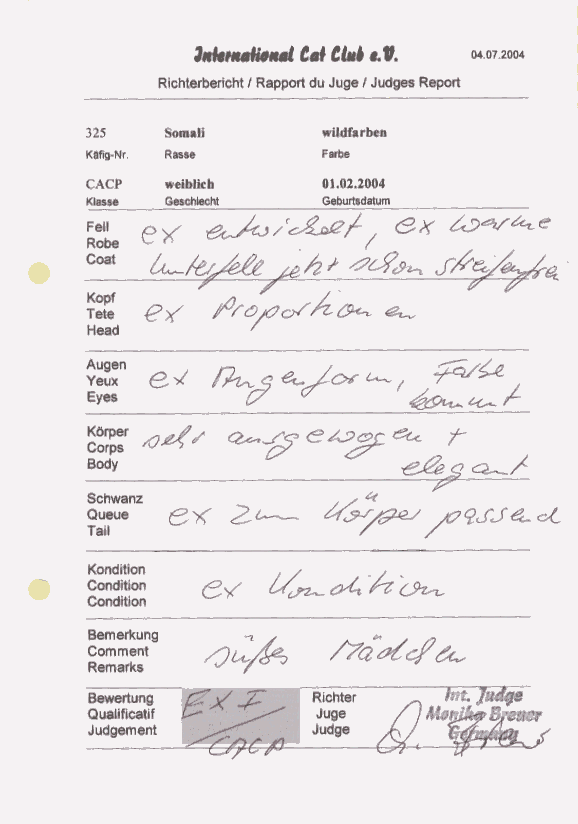 International Cat Club e.V. 04.07.2004
Richterbericht / Rapport du Juge / Judges Report
325 Somali wildfarben
Käfig-Nr. Rasse Farbe
CACP weiblich 01.02.2004
Klasse Geschlecht Geburtsdatum
Fell ex entwickelt, ex warme
Robe
Coat Unterfell jetzt schon streifenfrei
Kopf
Tete ex Proportionen
Head
Augen
Yeux ex Augenform, Farbe
Eyes kommt
Körper sehr ausgewogen +
Corps
Body elegant
Schwanz
Queue ex zum Körper passend
Tail
Kondition
Condition ex Kondition
Condition
Bemerkung
Comment süßes Mädchen
Remarks
Bewertung EX I Richter Int. Judge
Qualificatif Juge Monika Breuer
Judgement CACP Judge Germany